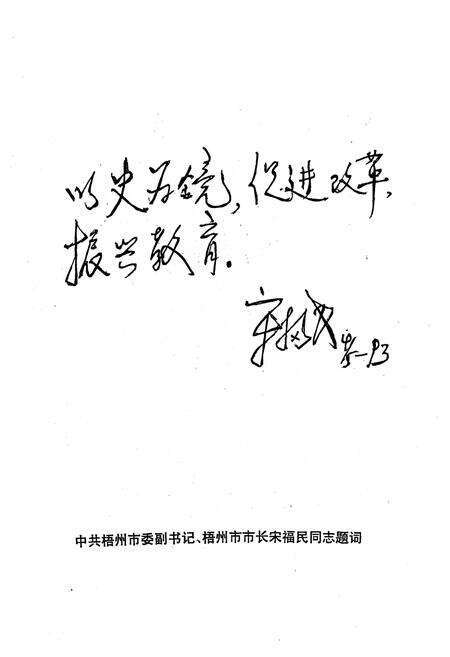 以史为镜,促进改革、
振兴教育。
宋福民
中共梧州市委副书记、梧州市市长宋福民同志题词